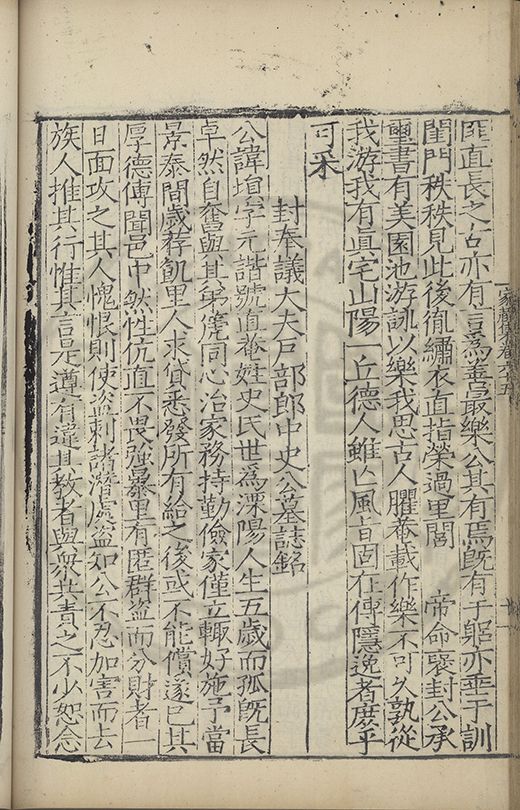 匪直長之占亦有言爲善最樂公其有焉旣有于躬亦垂于訓
閨門秩秩見此後胤繡衣直指榮過里閭 帝命褒封公承
璽書有美園池游詠以樂我思古人臞菴載作樂不可久孰從
我游我有眞宅山陽一丘德人雖亾風旨固在傳隱逸者庶乎
可采
封奉議大夫戶部郎中史公墓誌銘
公諱塤字元諧號直菴姓史氏世爲溧陽人生五歲而孤旣長
卓然自奮與其弟箎同心治家務持勤儉家僅立輙好施予當
景泰間歲荐飢里人求貸悉發所有給之後或不能償遂已其
厚德傳聞邑中然性伉直不畏強暴里有匿群盜而分財者一
日面攻之其人愧恨則使盜刺諸潛處盜知公不忍加害而去
族人推其行惟其言是遵有違其教者與衆共責之不少恕念
家藏集卷六十五